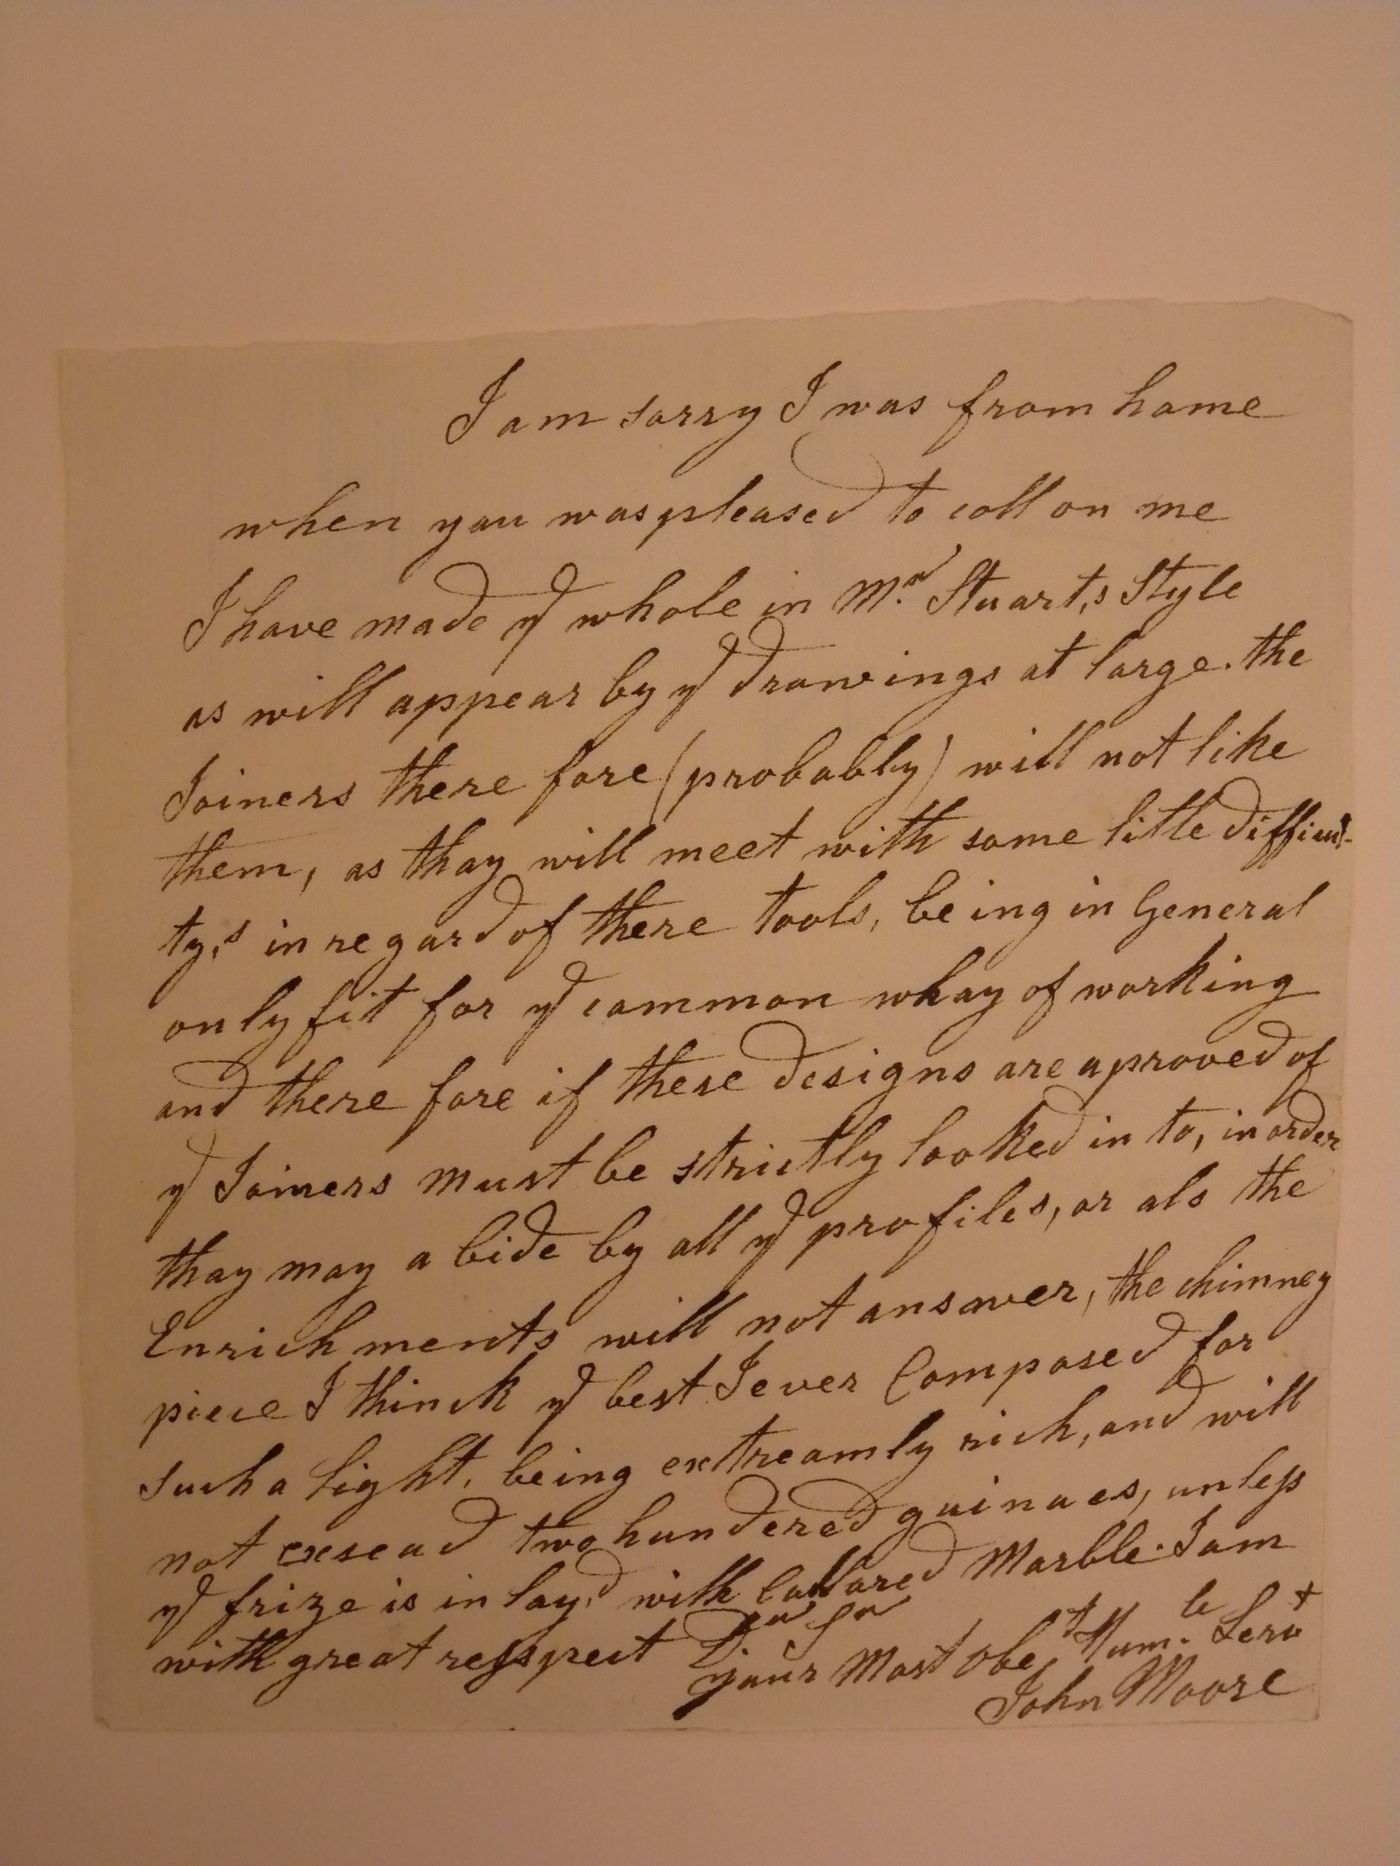 I am sorry I was from home
when you was pleased to coll on me
I have made yᵉ whole in Mr. Stuart,s Style
as will appear by yᵉ drawings at large. the
Joiners there fore (probably) will not like
them, as thay will meet with some litle difficul-
ty,s in regard of there tools, being in General
only fit for yᵉ common whay of working
and there fore if these designs are aproved of
yᵉ Joiners must be strictly looked in to, in order
thay may a bide by all yᵉ profiles, or als the
Enrichments will not answer, the chimney
piece I thinck yᵉ best I ever Composed for
such a light, being extreamly rich, and will
not exsead two hundered guinaes, unless
yᵉ frize is in lay,d with Collared Marble. I am
with great resspect Dr. Sr
your Most Obet Hum.le Servt
John Moore